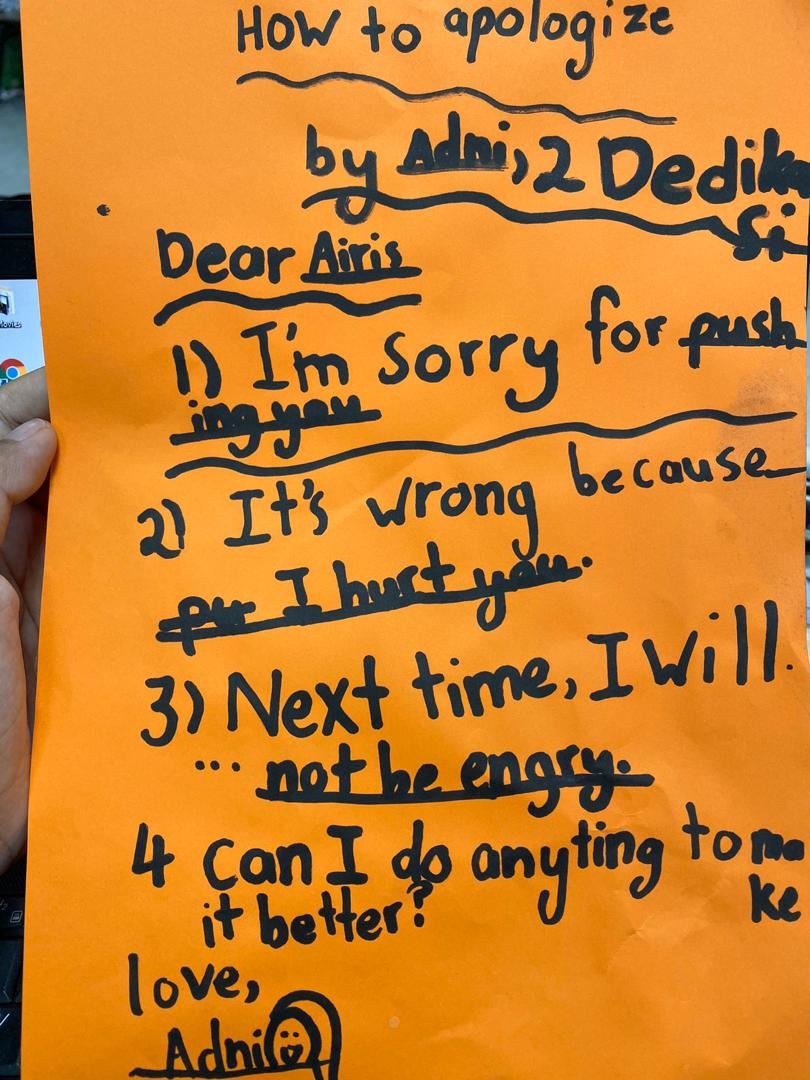 How to apologize
by Adni, 2 Dedika
si
Dear Airis
1) I'm sorry for push
ing you
2) It's wrong because
pu I hurt you.
3) Next time, I will.
... not be engry.
4 can I do anyting to ma
ke
it better?
love,
Adni
Movies